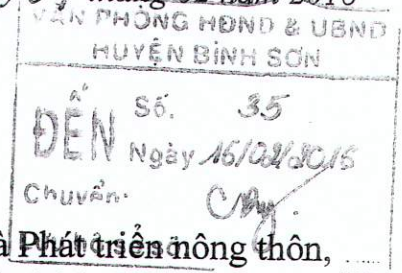 tháng 02 năm 2015
VĂN PHÒNG HĐND & UBND
HUYỆN BÌNH SƠN
ĐẾN
Số. 35
Ngày 16/02/2015
Chuyển:
à Phát triển nông thôn,